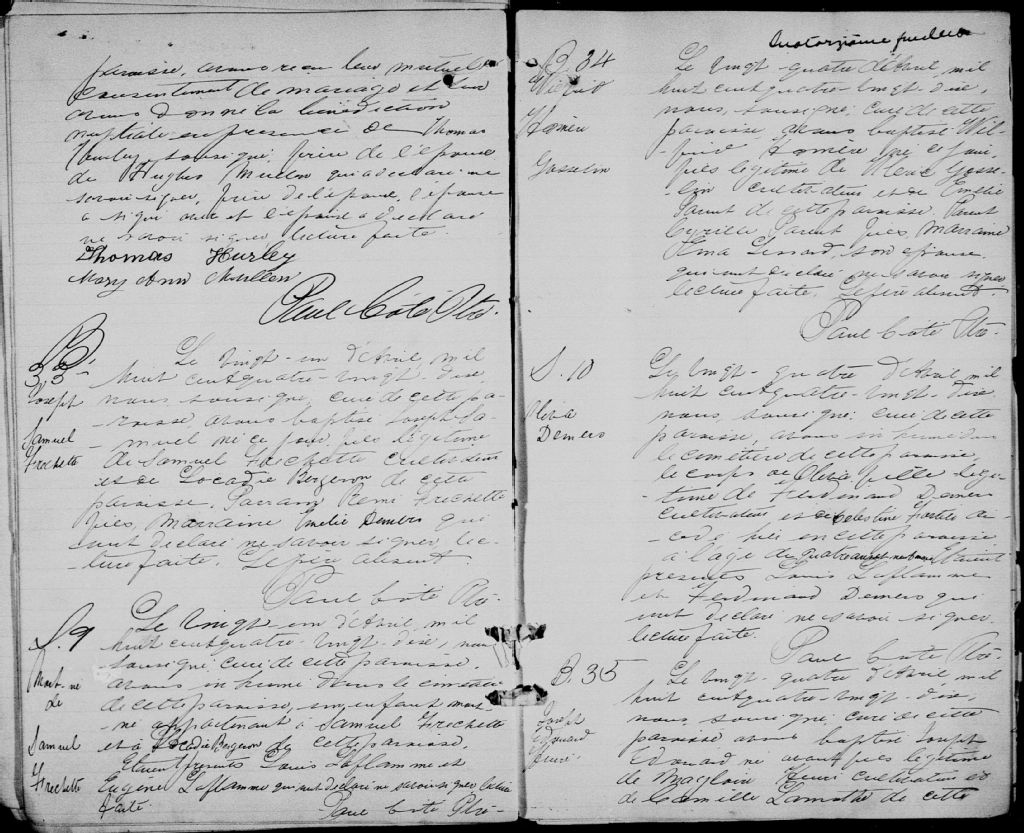 paroisse, avons reçu leur mutuel
consentement de mariage et leur
avons donné la bénédiction
nuptiale en présence de Thomas
Hurley, soussigné, père de l'époux
de Hughes Mullen qui a déclaré ne
savoir signer, père de l'épouse, l'épouse
a signé avec et l'époux a déclaré
ne savoir signer, lecture faite.
Thomas Hurley
Mary Ann Mullen
Paul Côté Ptre.
B. 33
Joseph
Samuel
Frechette
Le vingt-un d'Avril, mil
huit cent quatre-vingt-dix,
nous, soussigné, curé de cette pa-
roisse, avons baptisé Joseph Sa-
muel né ce jour, fils légitime
de Samuel Frechette cultivateur
et de Locadie Bergeron de cette
paroisse. Parrain Remi Frechette
fils, Marraine Emelie Demers qui
ont déclaré ne savoir signer, lec-
ture faite. Le père absent.
Paul Côté Ptre
S. 9
Mort-né
de
Samuel
Frechette
Le vingt-un d'Avril mil
huit cent quatre-vingt-dix, nous
soussigné, curé de cette paroisse,
avons inhumé dans le cimetière
de cette paroisse, un enfant mort
né appartenant à Samuel Frechette
et à Locadie Bergeron de cette paroisse.
Etaient présents Louis Laflamme et
Eugène Laflamme qui ont déclaré ne savoir signer lecture
faite
Paul Côté Ptre
Quatorzième feuillet
B. 34
Wilfrid
Homère
Gosselin
Le vingt-quatre d'Avril, mil
huit cent quatre-vingt-dix,
nous, soussigné, curé de cette
paroisse, avons baptisé Wil-
frid Homère né ce jour,
fils légitime de Gosse-
lin cultivateur et de Emélie
Parent de cette paroisse. Parrain
Cyrille Parent fils, Marraine
Lessard, son épouse
qui ont déclaré ne savoir signer
lecture faite. Le père absent.
Paul Côté Ptre.
S. 10
Olivia
Demers
Le vingt-quatre d'Avril mil
huit cent quatre-vingt-dix
nous, soussigné, curé de cette
paroisse, avons inhumé dans
le cimetière de cette paroisse,
le corps de Olivia, fille légi-
time de Ferdinand Demers
cultivateur et de Célestine Fortier dé-
cédée hier en cette paroisse
à l'âge de quatre ans Etaient
présents Louis Laflamme
et Ferdinand Demers qui
ont déclaré ne savoir signer
lecture faite.
Paul Côté Ptre.
B. 35
Joseph
Edouard
Henri.
Le vingt-quatre d'Avril, mil
huit cent quatre-vingt-dix
nous, soussigné, curé de cette
paroisse avons baptisé Joseph
Edouard né avant fils légitime
de Magloire Henri cultivateur et
de Camille Lamothe de cette